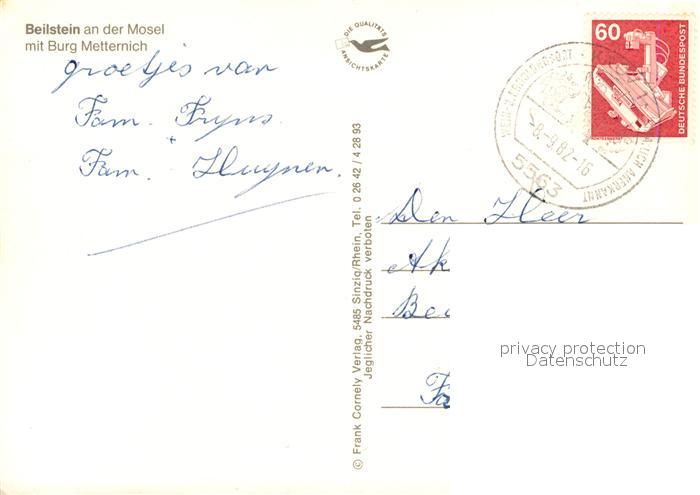 Beilstein an der Mosel
mit Burg Metternich
groetjes van
Fam. Fryns
+
Fam. Huynen.
DIE QUALITÄTS
ANSICHTSKARTE
© Frank Cornely Verlag, 5485 Sinzig/Rhein, Tel. 0 26 42 / 4 28 93
Jeglicher Nachdruck verboten
60
DEUTSCHE BUNDESPOST
-8.-9.82-16
5563
AUCH ANERKANNT
Den Heer
Ak
Be
Fa
privacy protection
Datenschutz